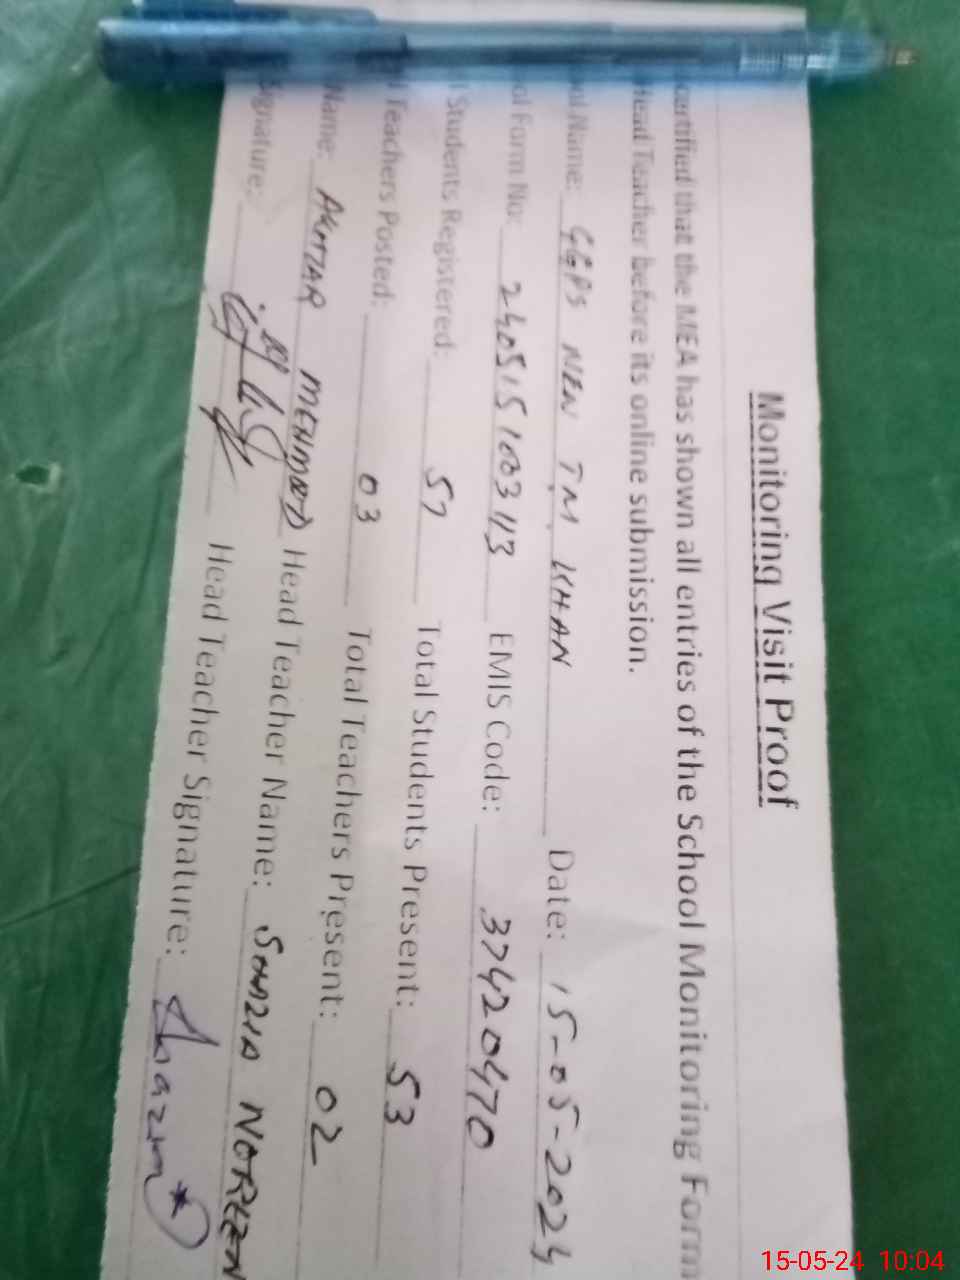 Monitoring Visit Proof
certified that the MEA has shown all entries of the School Monitoring Form
Head Teacher before its online submission.
ool Name: GGPS NEW TM KHAN Date: 15-05-2024
ol Form No: 2405151003113 EMIS Code: 37420470
l Students Registered: 57 Total Students Present: 53
l Teachers Posted: 03 Total Teachers Present: 02
Name: AKHTAR MEHMOOD Head Teacher Name: NOREEN
Signature: Head Teacher Signature:
15-05-24 10:04